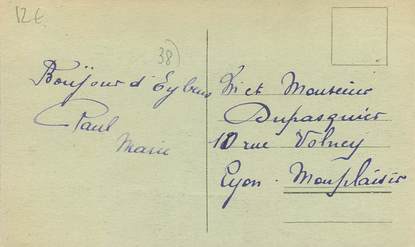 12€
38)
Bonjour d'Eybens
Paul
Marie
Mr et Monsieur
Dupasquier
10 rue Volney
Lyon - Monplaisir